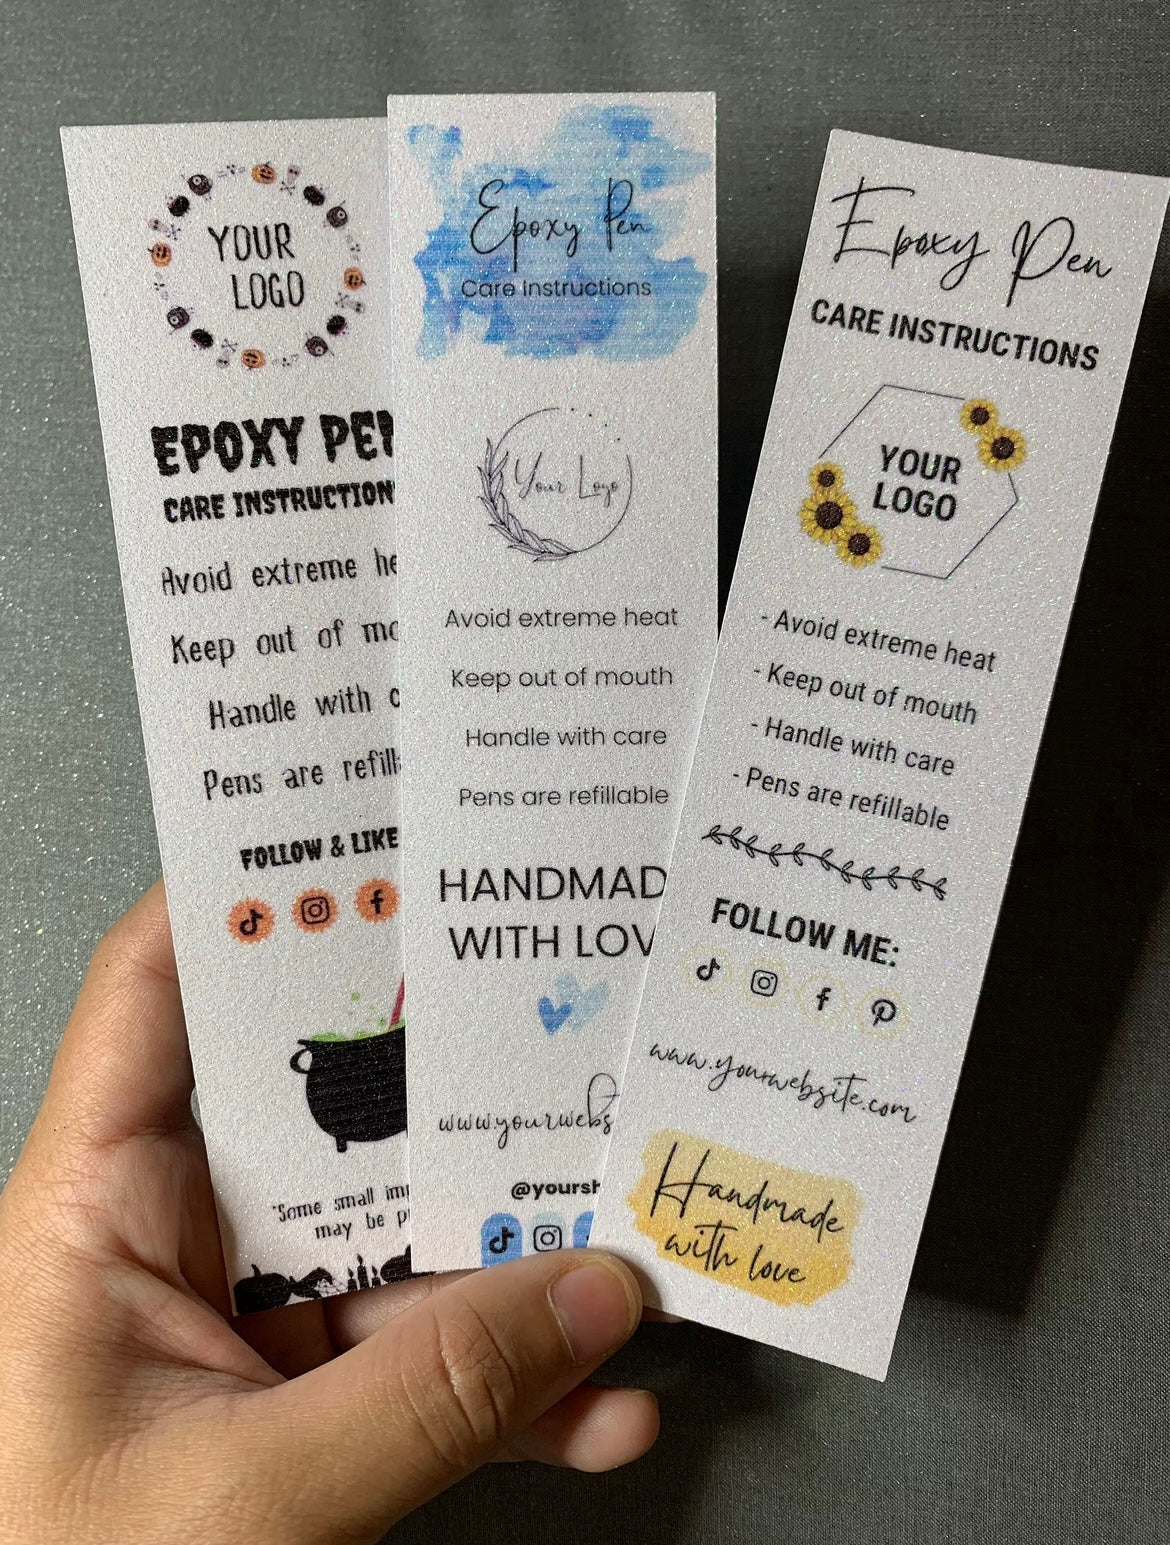 YOUR
LOGO
EPOXY PEN
CARE INSTRUCTION
Avoid extreme he
Keep out of mo
Handle with c
Pens are refill
FOLLOW & LIKE
"Some small imp
may be p
Epoxy Pen
Care Instructions
Your Logo
Avoid extreme heat
Keep out of mouth
Handle with care
Pens are refillable
HANDMAD
WITH LOV
www.yourwebs
@yoursh
Epoxy Pen
CARE INSTRUCTIONS
YOUR
LOGO
- Avoid extreme heat
- Keep out of mouth
- Handle with care
- Pens are refillable
FOLLOW ME:
www.yourwebsite.com
Handmade
with love